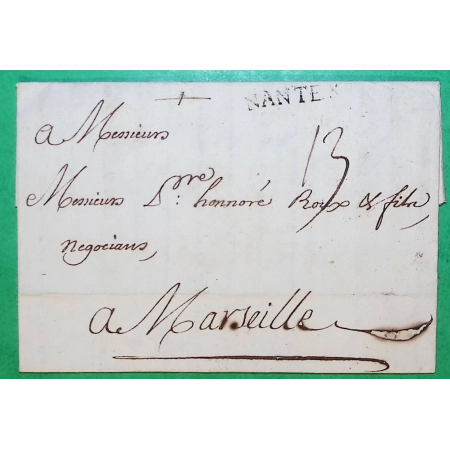 NANTES
13
a Messieurs
Messieurs D.rre honnoré Roux & fils,
Negocians,
a Marseille